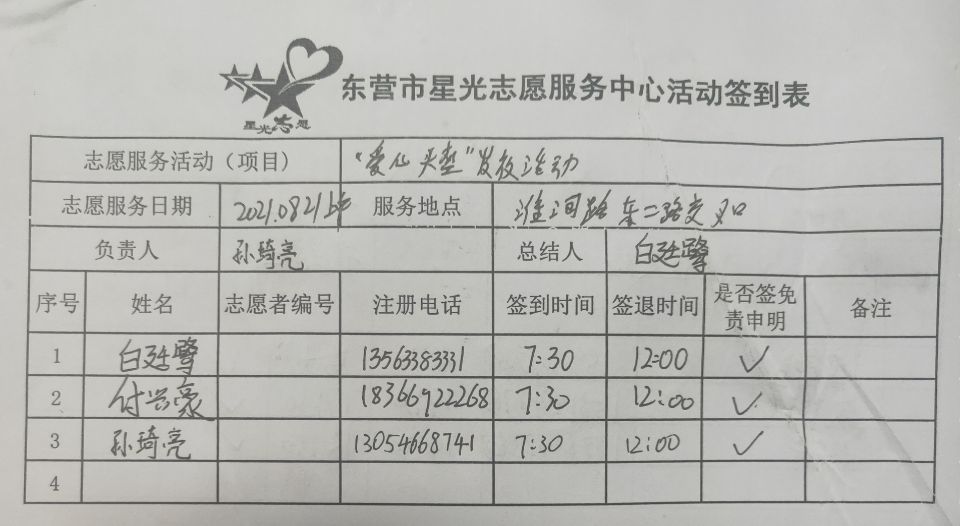 星光志愿
东营市星光志愿服务中心活动签到表
志愿服务活动（项目） “爱心头盔”发放活动
志愿服务日期 2021.0821上午 服务地点 淮河路东二路交叉口
负责人 孙琦亮 总结人 白廷鹭
序号 姓名 志愿者编号 注册电话 签到时间 签退时间 是否签免责申明 备注
1 白廷鹭 13563383331 7:30 12:00 ✓
2 付兴豪 18366922268 7:30 12:00 ✓
3 孙琦亮 13054668741 7:30 12:00 ✓
4